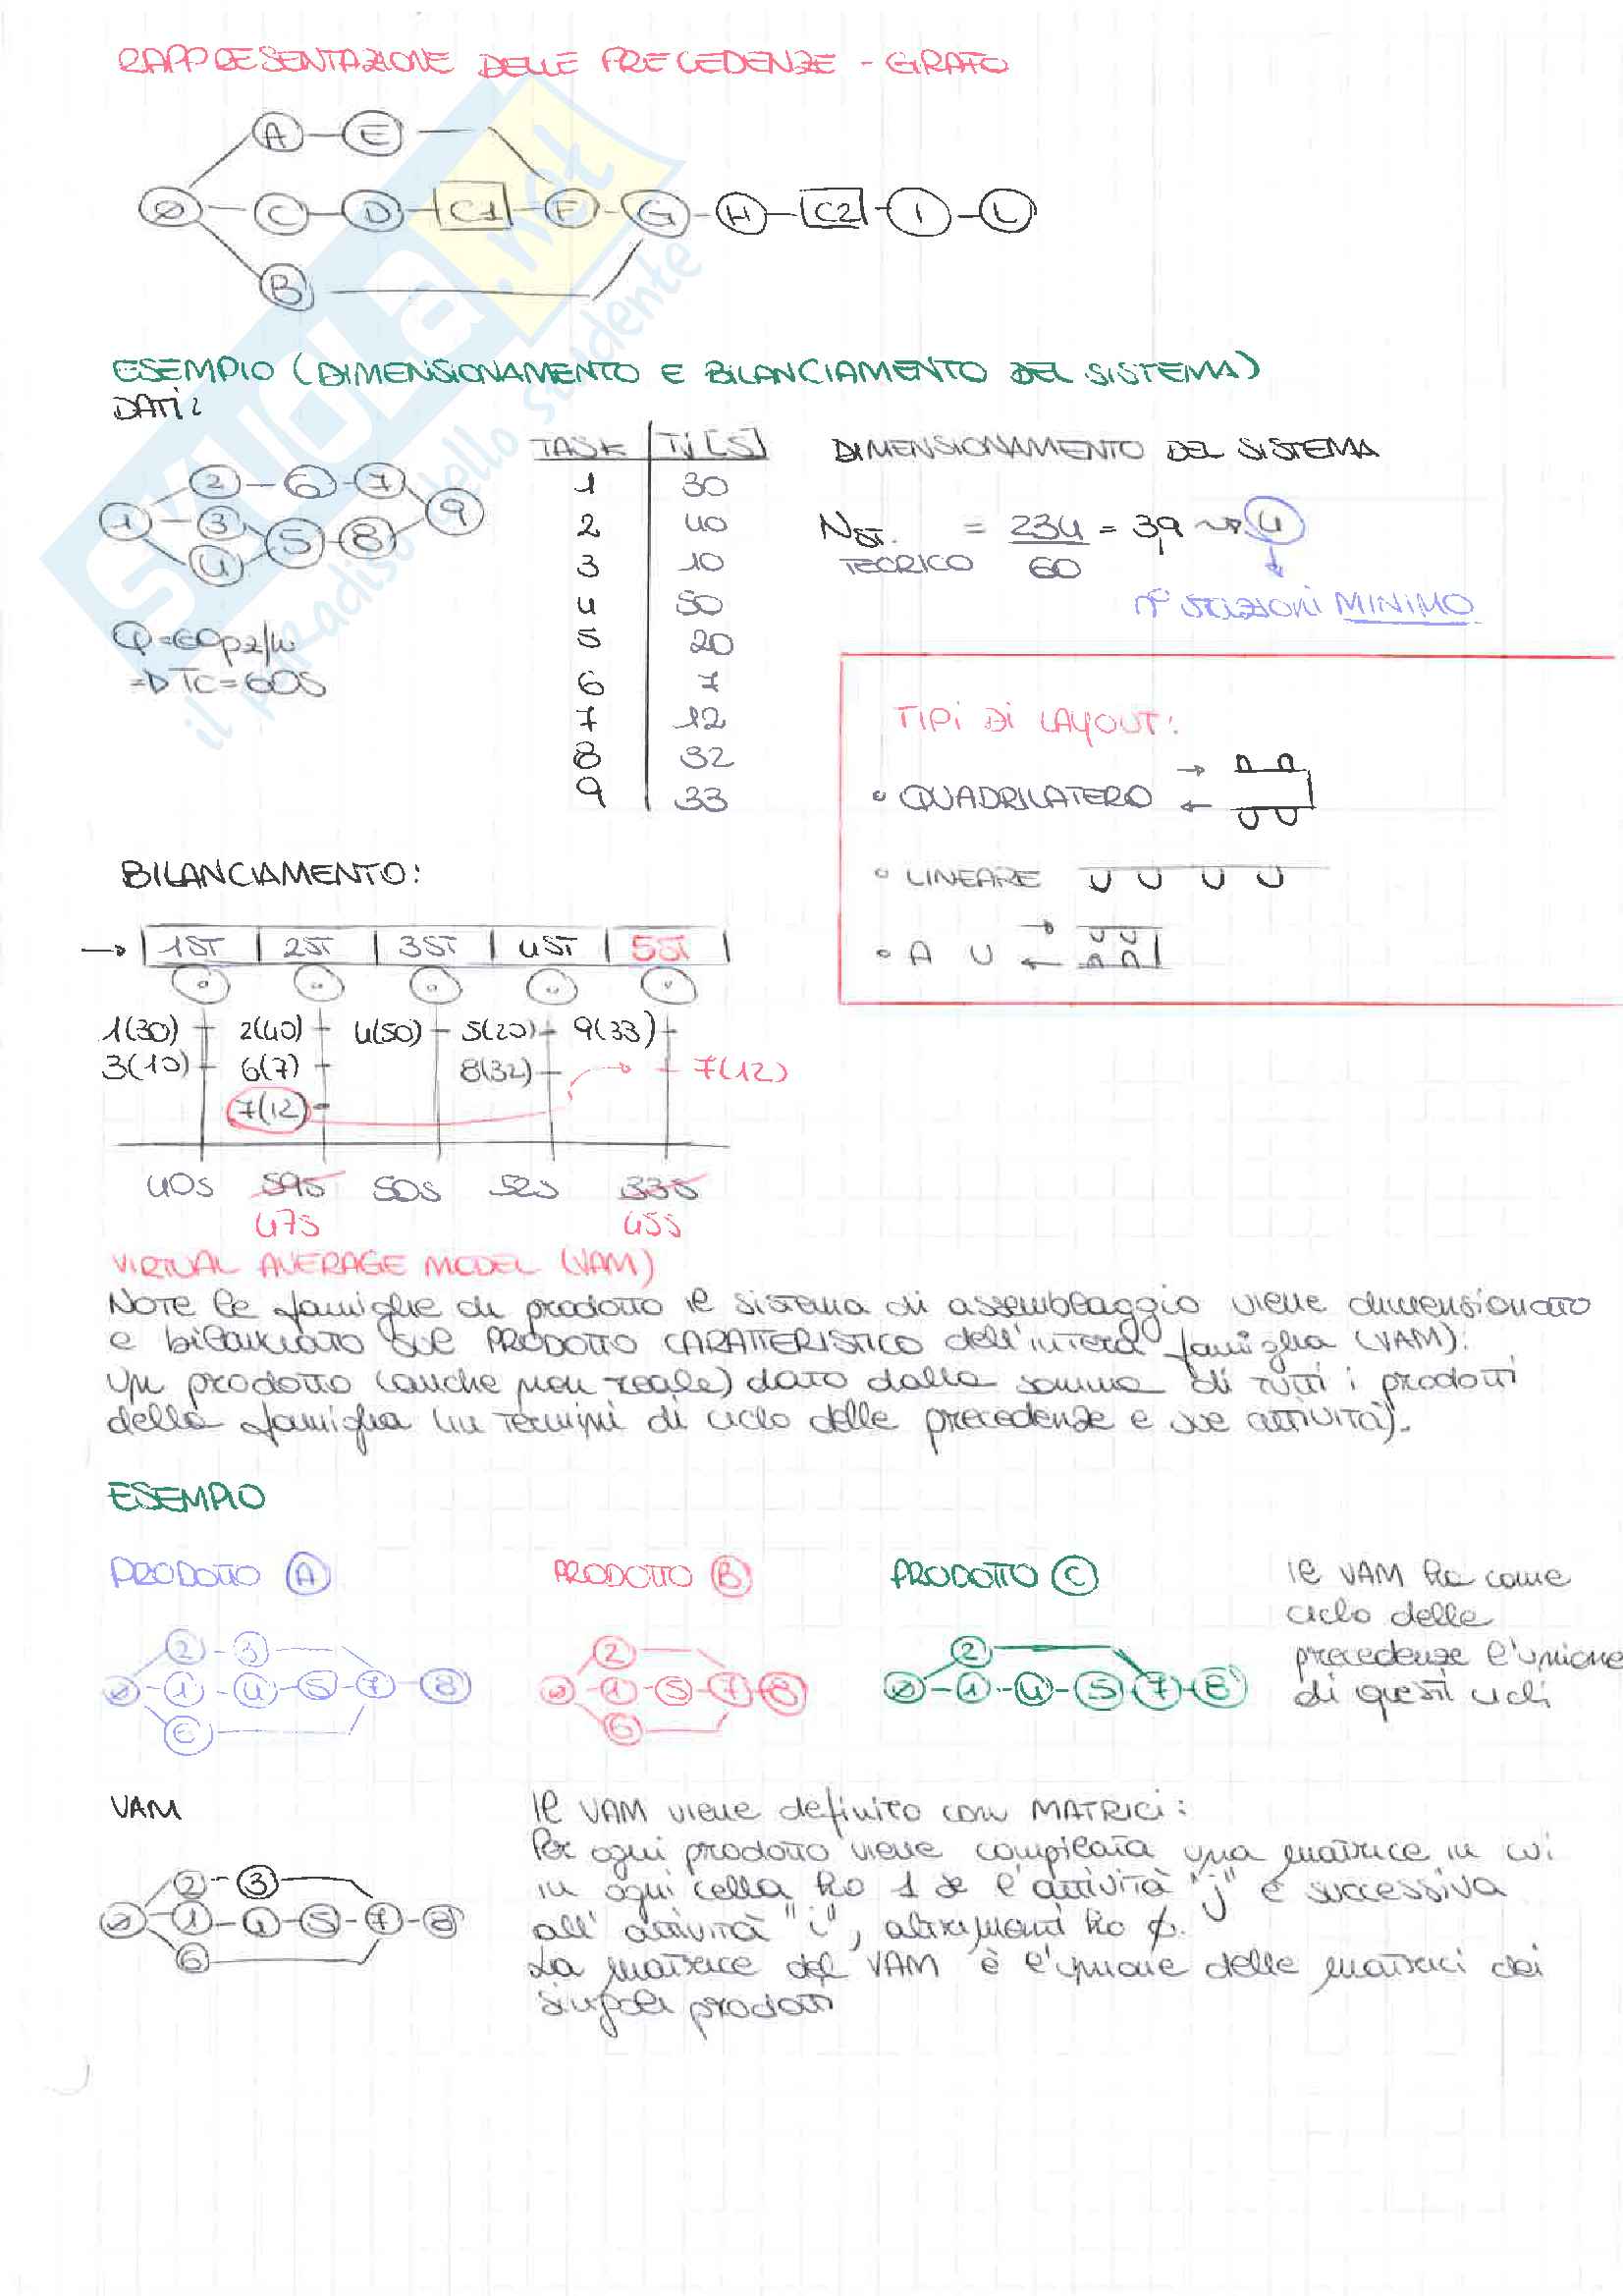 RAPPRESENTAZIONE DELLE PRECEDENZE - GRAFO
A E
Ø C D C1 F G H C2 I L
B
SKUOLA.net
il paradiso dello studente
ESEMPIO (DIMENSIONAMENTO E BILANCIAMENTO DEL SISTEMA)
DATI:
2 6 7
1 3 5 8 9
4
Q=60pz/h
=D TC=60S
TASK Ti [S]
1 30
2 40
3 10
4 50
5 20
6 7
7 12
8 32
9 33
DIMENSIONAMENTO DEL SISTEMA
NST. = 234 = 3,9 → 4
TEORICO 60
n° STAZIONI MINIMO
TIPI DI LAYOUT:
• QUADRILATERO
• LINEARE
• A U
BILANCIAMENTO:
1ST 2ST 3ST 4ST 5ST
1(30) 2(40) 4(50) 5(20) 9(33)
3(10) 6(7) 8(32) 7(12)
7(12)
40S 59S 50S 52S 33S
47S 45S
VIRTUAL AVERAGE MODEL (VAM)
Note le famiglie di prodotto il sistema di assemblaggio viene dimensionato
e bilanciato sul PRODOTTO CARATTERISTICO dell'intera famiglia (VAM).
Un prodotto (anche non reale) dato dalla somma di tutti i prodotti
della famiglia (in termini di ciclo delle precedenze e sue attività).
ESEMPIO
PRODOTTO A PRODOTTO B PRODOTTO C
2 3
Ø 1 4 5 7 8
6
2
Ø 1 5 7 8
6
2
Ø 1 4 5 7 8
Il VAM ha come
ciclo delle
precedenze l'unione
di questi cicli
VAM
2 3
Ø 1 4 5 7 8
6
Il VAM viene definito con MATRICI:
Per ogni prodotto viene compilata una matrice in cui
in ogni cella ho 1 se l'attività "j" è successiva
all' attività "i", altrimenti ho Ø.
La matrice del VAM è l'unione delle matrici dei
singoli prodotti